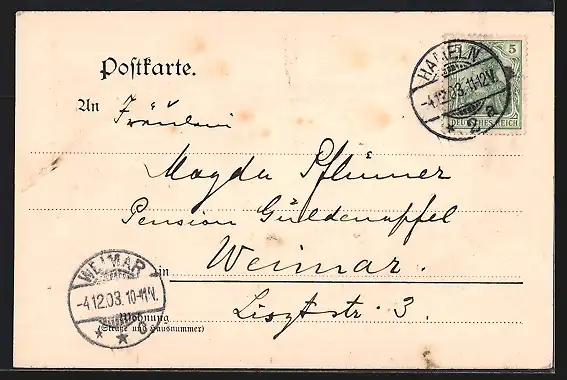 Postkarte.
HAMELN
-4.12.03.11-12V.
* 2 a
5
DEUTSCHES REICH
An Fräulein
Magda Pflümer
Pension Güldenapfel
in Weimar.
Lisztstr. 3.
Wohnung
(Straße und Hausnummer)
WEIMAR
-4.12.03.10-11N.
* *